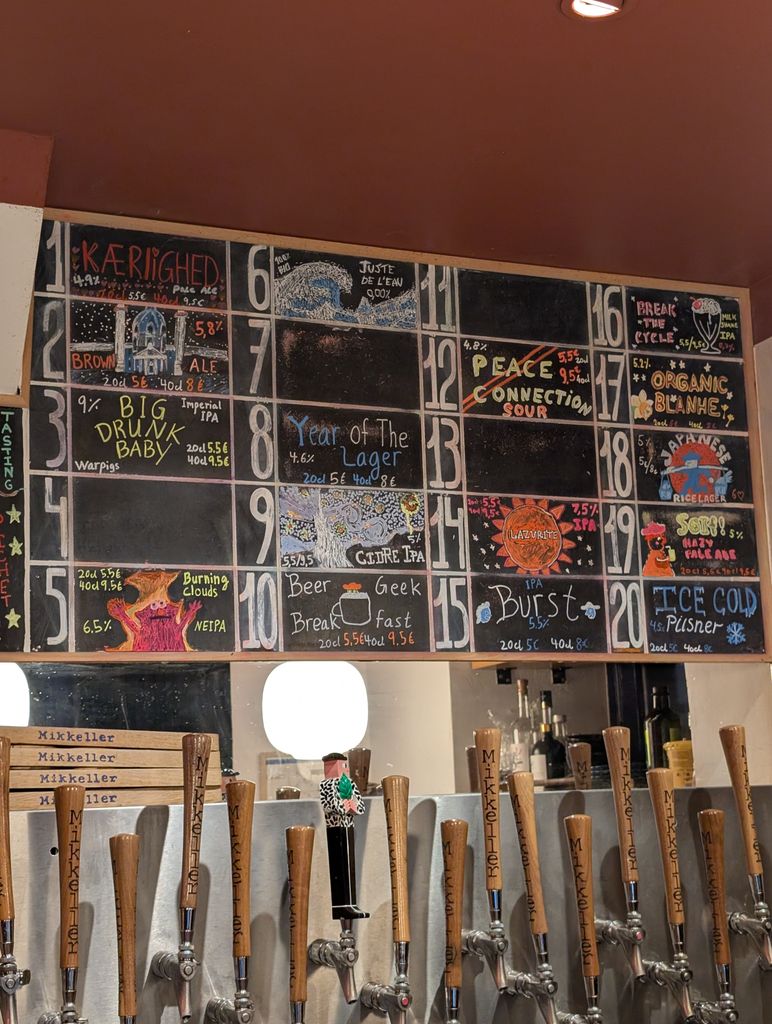 TASTING
1
KÆRLIGHED
4.9%
Pale Ale
20cl 5.5€ 40cl 9.5€
2
5,8%
BROWN ALE
20cl 5€ 40cl 8€
3
9%
BIG
DRUNK
BABY
Imperial
IPA
20cl 5.5€
40cl 9.5€
Warpigs
4
5
20cl 5.5€
40cl 9.5€
Burning
clouds
6.5%
NEIPA
6
100%
BIO
JUSTE
DE L'EAU
0,00%
7
8
Year of The
Lager
4.6%
20cl 5€ 40cl 8€
9
5%
5,5/9,5
CITRE IPA
10
Beer Geek
Break fast
20cl 5,5€ 40cl 9.5€
11
12
4,8%
PEACE
CONNECTION
SOUR
5,5€ 20cl
9,5€ 40cl
13
14
7,5%
IPA
LAZURITE
15
IPA
Burst
5.5%
20cl 5€ 40cl 8€
16
BREAK
THE
CYCLE
MILK
SHAKE
IPA
17
5.2%
ORGANIC
BLANHE
18
5%
JAPANESE
RICE LAGER
19
5%
HAZY
PALE ALE
20
ICE COLD
4.5%
Pilsner
20cl 5€ 40cl 8€
Mikkeller
Mikkeller
Mikkeller
Mikkeller
Mikkeller
Mikkeller
Mikkeller
Mikkeller
Mikkeller
Mikkeller